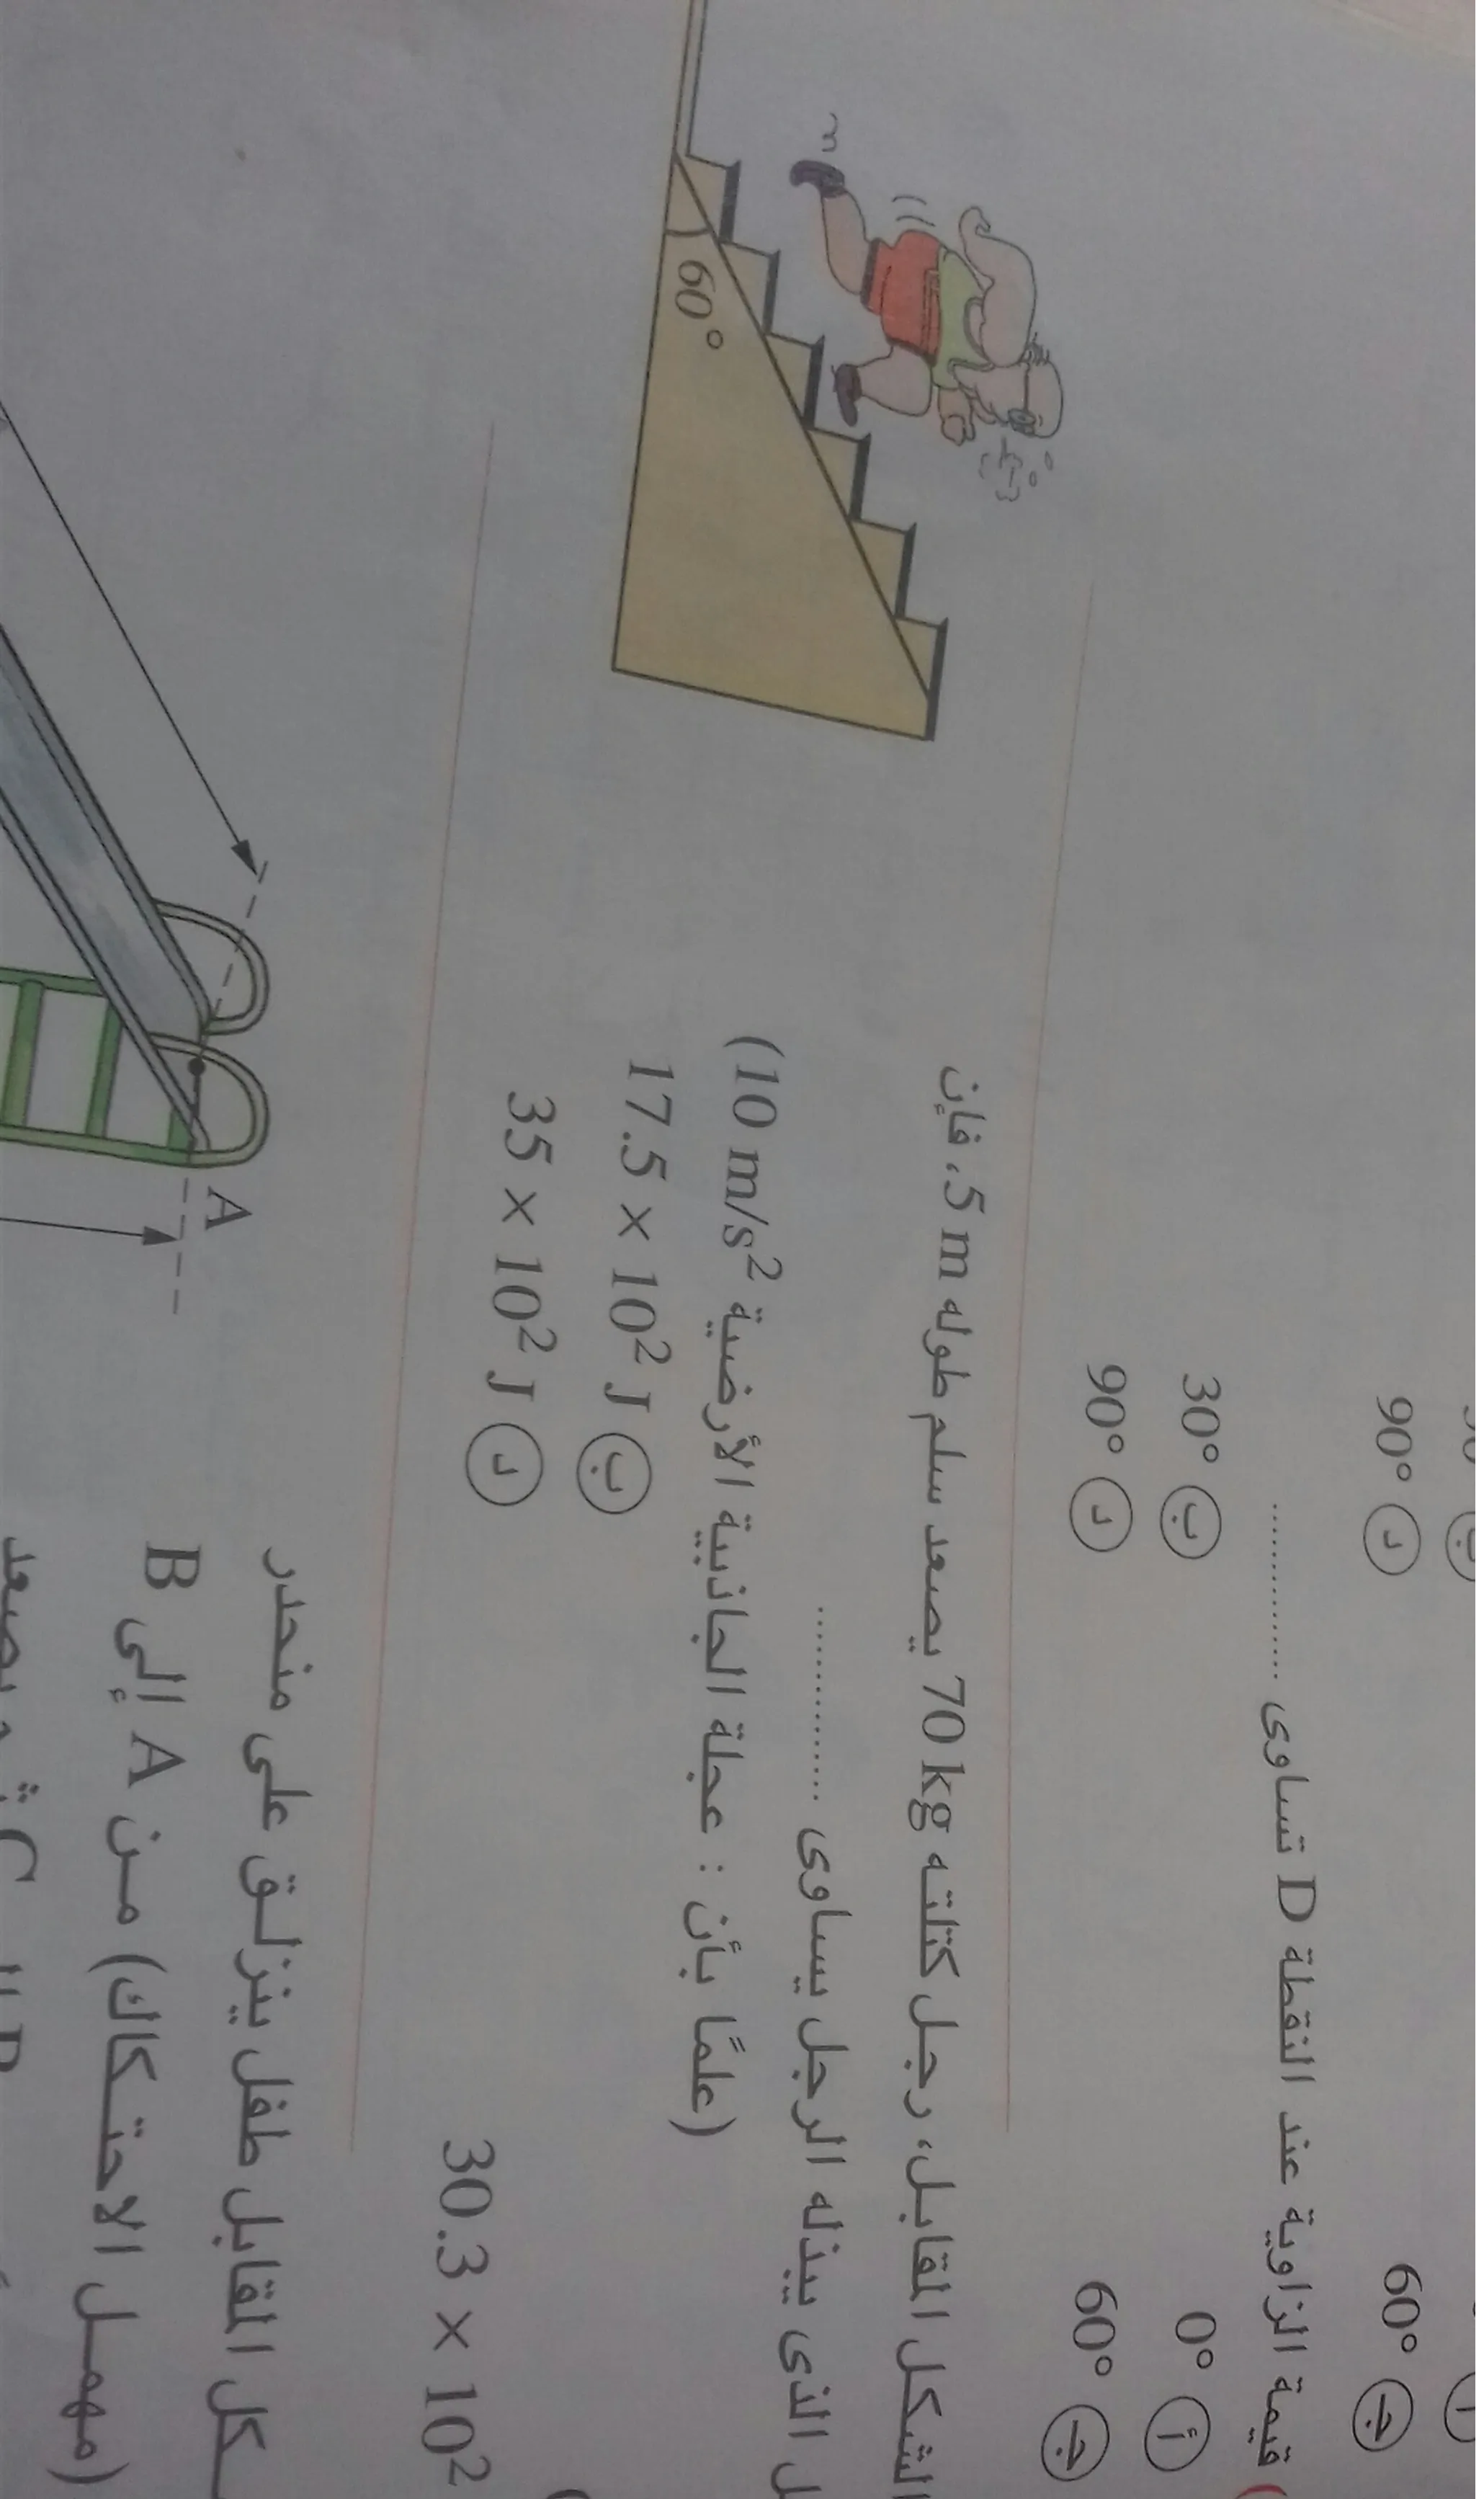 90° د
60° ج
قيمة الزاوية عند النقطة D تساوى ..............
أ 0°
ب 30°
ج 60°
د 90°
الشكل المقابل، رجل كتلته 70 kg يصعد سلم طوله 5 m، فإن
الذى يبذله الرجل يساوى ..............
(علمًا بأن : عجلة الجاذبية الأرضية 10 m/s²)
ب 17.5 × 10² J
30.3 × 10²
د 35 × 10² J
60°
المقابل طفل ينزلق على منحدر
(مهمل الاحتكاك) من A إلى B
A